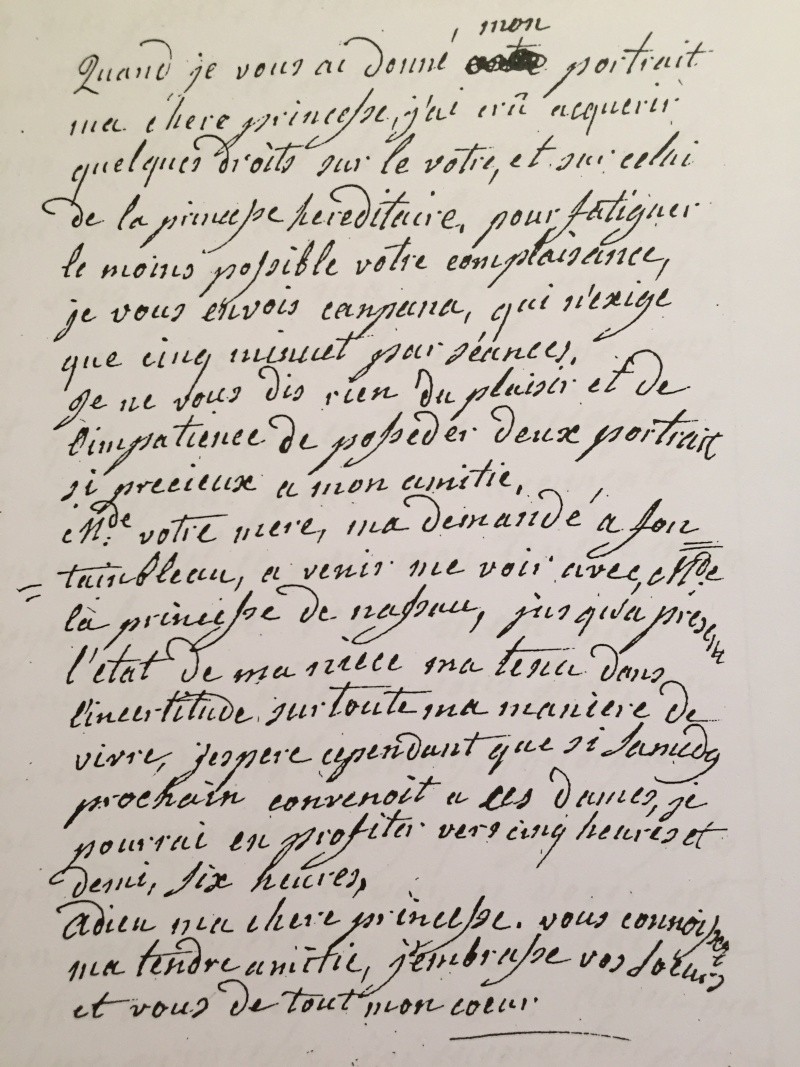 mon
Quand je vous ai donné portrait
ma chere princesse, j'ai crû acquerir
quelques droits sur le votre, et sur celui
de la princesse hereditaire, pour fatiguer
le moins possible votre complaisance,
je vous envois canpana, qui n'exige
que cinq minuet par séances,
Je ne vous dis rien du plaisir et de
l'impatience de posseder deux portrait
si precieux a mon amitie,
Mde votre mere, ma demandé a fon
= tainbleau, a venir me voir avec Mde
là princesse de nassau, jusqu'a present
l'etat de ma niéce ma tenu dans
l'incertitude surtoute ma maniere de
vivre, j'espere cependant que si samedy
prochain convenoit a ces dames, je
pourrai en profiter vers cinq heures et
demi, six heures,
adieu ma chere princesse. vous connoissez
ma tendre amitie, j'embrasse vos soeurs
et vous de tout mon coeur